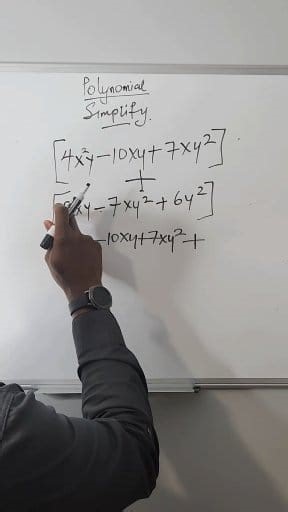 Polynomial
Simplify.
[4x²y-10xy+7xy²]
+
xy-7xy²+6y²]
-10xy+7xy²+